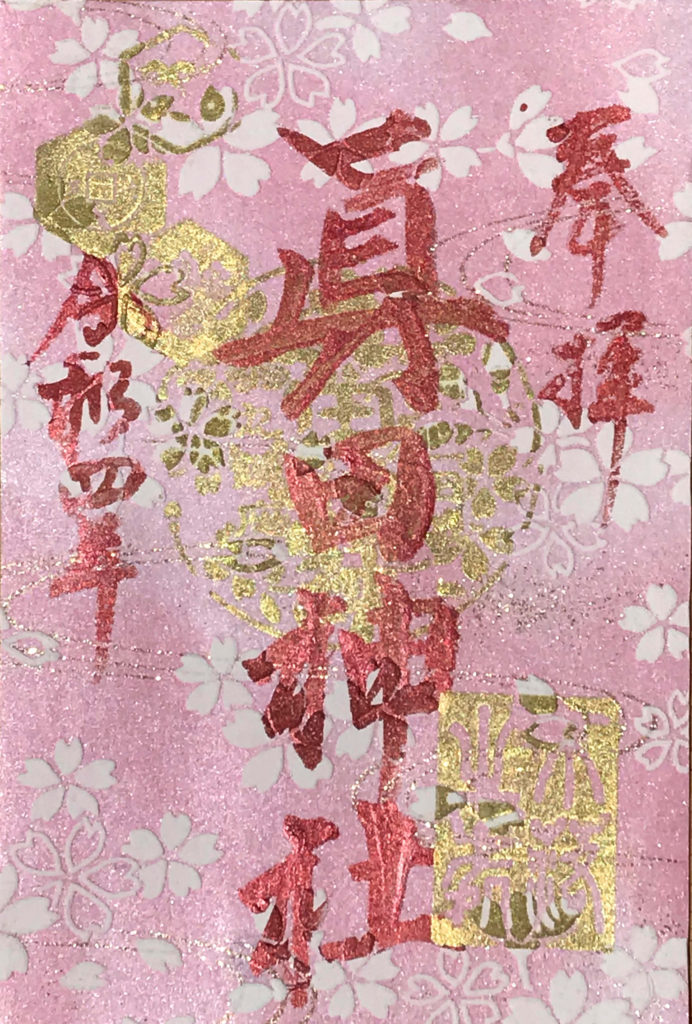 奉拝
眞田神社
令和四年